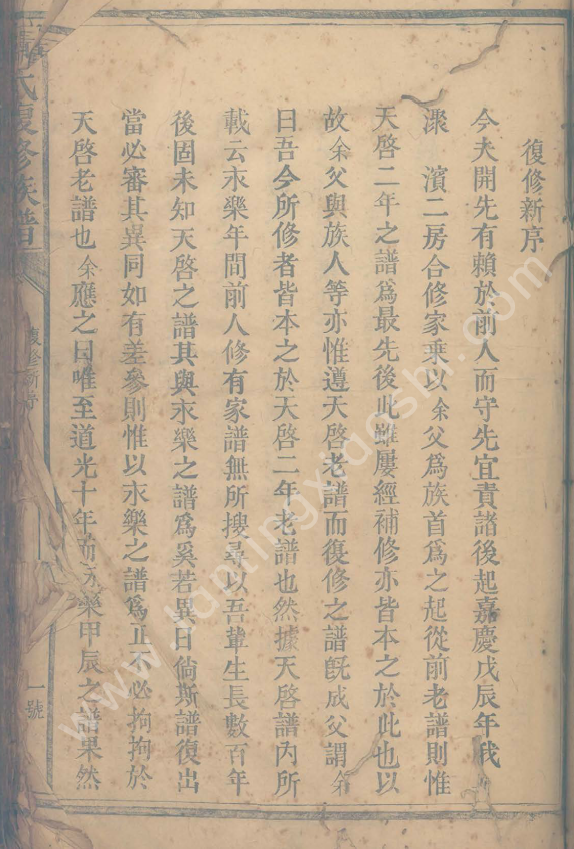 復修新序
今夫開先有賴於前人而守先宜責諸後起嘉慶戊辰年我
濴 濱二房合修家乘以余父爲族首爲之起從前老譜則惟
天啓二年之譜爲最先後此雖屢經補修亦皆本之於此也以
故余父與族人等亦惟遵天啓老譜而復修之譜旣成父謂余
曰吾今所修者皆本之於天啓二年老譜也然據天啓譜內所
載云永樂年間前人修有家譜無所搜尋以吾輩生長數百年
後固未知天啓之譜其與永樂之譜爲奚若異日倘斯譜復出
當必審其異同如有差參則惟以永樂之譜爲正不必拘拘於
天啓老譜也余應之曰唯至道光十年而永樂甲辰之譜果然
氏復修族譜
復修新序
一號
www.tanpingxiaoshi.com